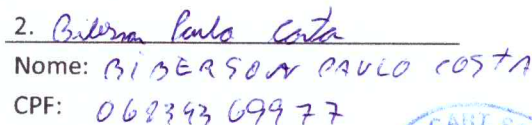 2. Biberson Paulo Costa
Nome: BIBERSON PAULO COSTA
CPF: 06839369977
CART